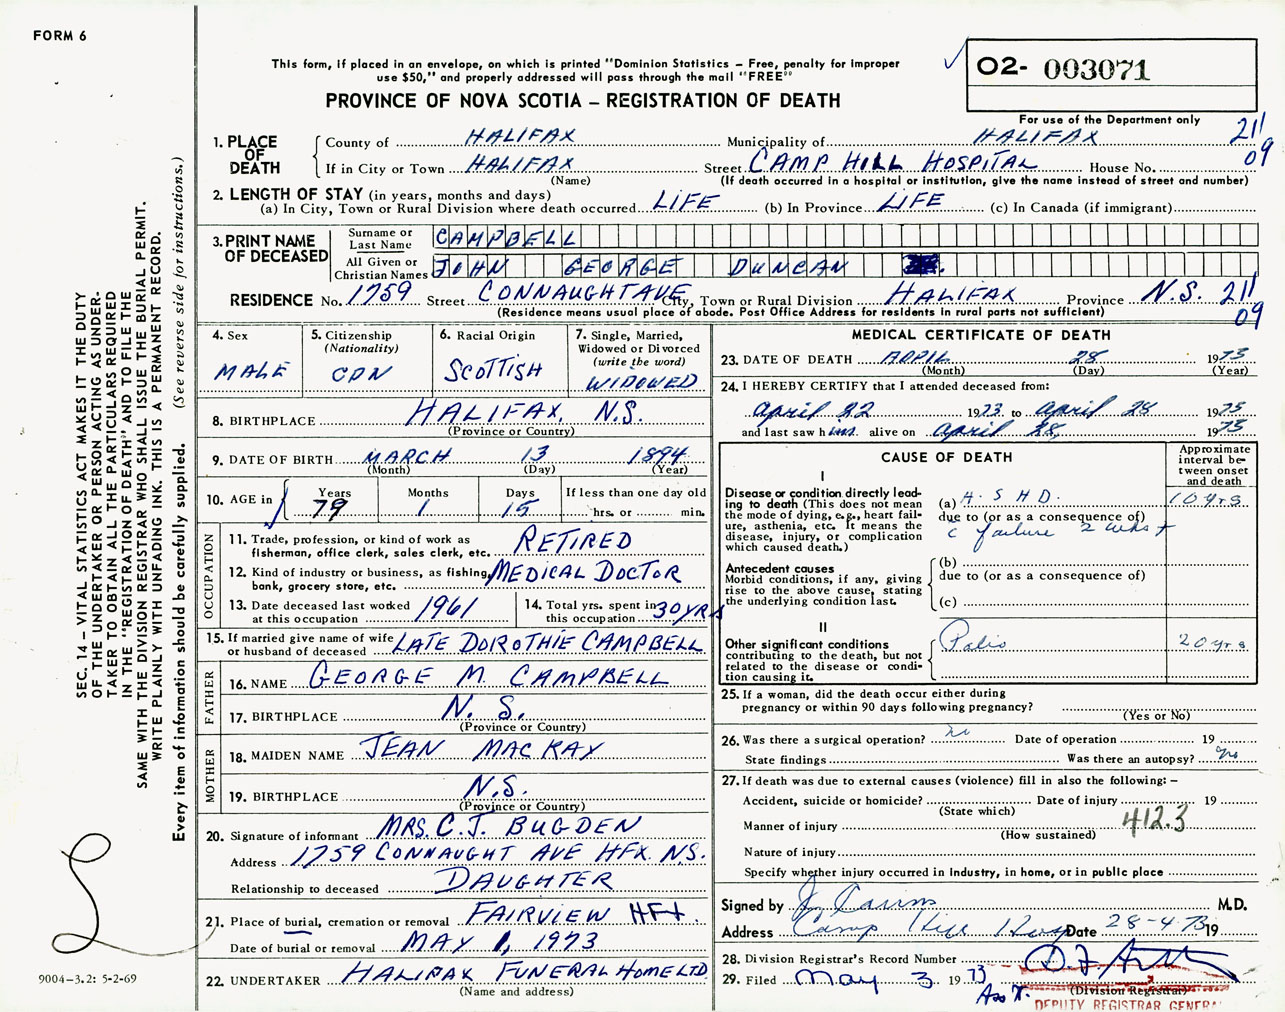 FORM 6
This form, if placed in an envelope, on which is printed "Dominion Statistics – Free, penalty for improper
use $50," and properly addressed will pass through the mail "FREE"
PROVINCE OF NOVA SCOTIA – REGISTRATION OF DEATH
02- 003071
For use of the Department only
211
09
1. PLACE OF DEATH
County of HALIFAX Municipality of HALIFAX
If in City or Town HALIFAX Street CAMP HILL HOSPITAL House No.
(Name) (If death occurred in a hospital or institution, give the name instead of street and number)
2. LENGTH OF STAY (in years, months and days)
(a) In City, Town or Rural Division where death occurred LIFE (b) In Province LIFE (c) In Canada (if immigrant)
3. PRINT NAME OF DECEASED
Surname or Last Name CAMPBELL
All Given or Christian Names JOHN GEORGE DUNCAN
RESIDENCE No. 1759 Street CONNAUGHT AVE City, Town or Rural Division HALIFAX Province N.S. 211
(Residence means usual place of abode. Post Office Address for residents in rural parts not sufficient) 09
4. Sex
MALE
5. Citizenship
(Nationality)
CDN
6. Racial Origin
SCOTTISH
7. Single, Married,
Widowed or Divorced
(write the word)
WIDOWED
8. BIRTHPLACE HALIFAX, N.S.
(Province or Country)
9. DATE OF BIRTH MARCH 13 1894
(Month) (Day) (Year)
10. AGE in
Years Months Days If less than one day old
79 1 15 hrs. or min.
OCCUPATION
11. Trade, profession, or kind of work as
fisherman, office clerk, sales clerk, etc. RETIRED
12. Kind of industry or business, as fishing,
bank, grocery store, etc. MEDICAL DOCTOR
13. Date deceased last worked
at this occupation 1961
14. Total yrs. spent in
this occupation 30 YRS
15. If married give name of wife
or husband of deceased LATE DOROTHIE CAMPBELL
FATHER
16. NAME GEORGE M. CAMPBELL
17. BIRTHPLACE N. S.
(Province or Country)
MOTHER
18. MAIDEN NAME JEAN MACKAY
19. BIRTHPLACE N.S.
(Province or Country)
20. Signature of informant MRS. C.J. BUGDEN
Address 1759 CONNAUGHT AVE HFX. N.S.
Relationship to deceased DAUGHTER
21. Place of burial, cremation or removal FAIRVIEW HFX.
Date of burial or removal MAY 1, 1973
22. UNDERTAKER HALIFAX FUNERAL HOME LTD.
(Name and address)
MEDICAL CERTIFICATE OF DEATH
23. DATE OF DEATH APRIL 28 1973
(Month) (Day) (Year)
24. I HEREBY CERTIFY that I attended deceased from:
April 22 1973 to April 28 1973
and last saw him alive on April 28, 1973
CAUSE OF DEATH
Approximate
interval be-
tween onset
and death
I
Disease or condition directly lead-
ing to death (This does not mean
the mode of dying, e.g., heart fail-
ure, asthenia, etc. It means the
disease, injury, or complication
which caused death.)
(a) A. S H D. 10 yrs
due to (or as a consequence of)
c failure 2 wks +
Antecedent causes
Morbid conditions, if any, giving
rise to the above cause, stating
the underlying condition last.
(b)
due to (or as a consequence of)
(c)
II
Other significant conditions
contributing to the death, but not
related to the disease or condi-
tion causing it.
Polio 20 yrs
25. If a woman, did the death occur either during
pregnancy or within 90 days following pregnancy?
(Yes or No)
26. Was there a surgical operation? no Date of operation 19
State findings Was there an autopsy? no
27. If death was due to external causes (violence) fill in also the following: –
Accident, suicide or homicide? Date of injury 19
(State which)
Manner of injury 412.3
(How sustained)
Nature of injury
Specify whether injury occurred in industry, in home, or in public place
Signed by M.D.
Address Camp Hill Hosp Date 28-4-73 19
28. Division Registrar's Record Number
29. Filed May 3 1973
Ass't.
(Division Registrar)
DEPUTY REGISTRAR GENERAL
SEC. 14 – VITAL STATISTICS ACT MAKES IT THE DUTY
OF THE UNDERTAKER OR PERSON ACTING AS UNDER-
TAKER TO OBTAIN ALL THE PARTICULARS REQUIRED
IN THE "REGISTRATION OF DEATH" AND TO FILE THE
SAME WITH THE DIVISION REGISTRAR WHO SHALL ISSUE THE BURIAL PERMIT.
WRITE PLAINLY WITH UNFADING INK. THIS IS A PERMANENT RECORD.
Every item of information should be carefully supplied. (See reverse side for instructions.)
9004-3.2: 5-2-69